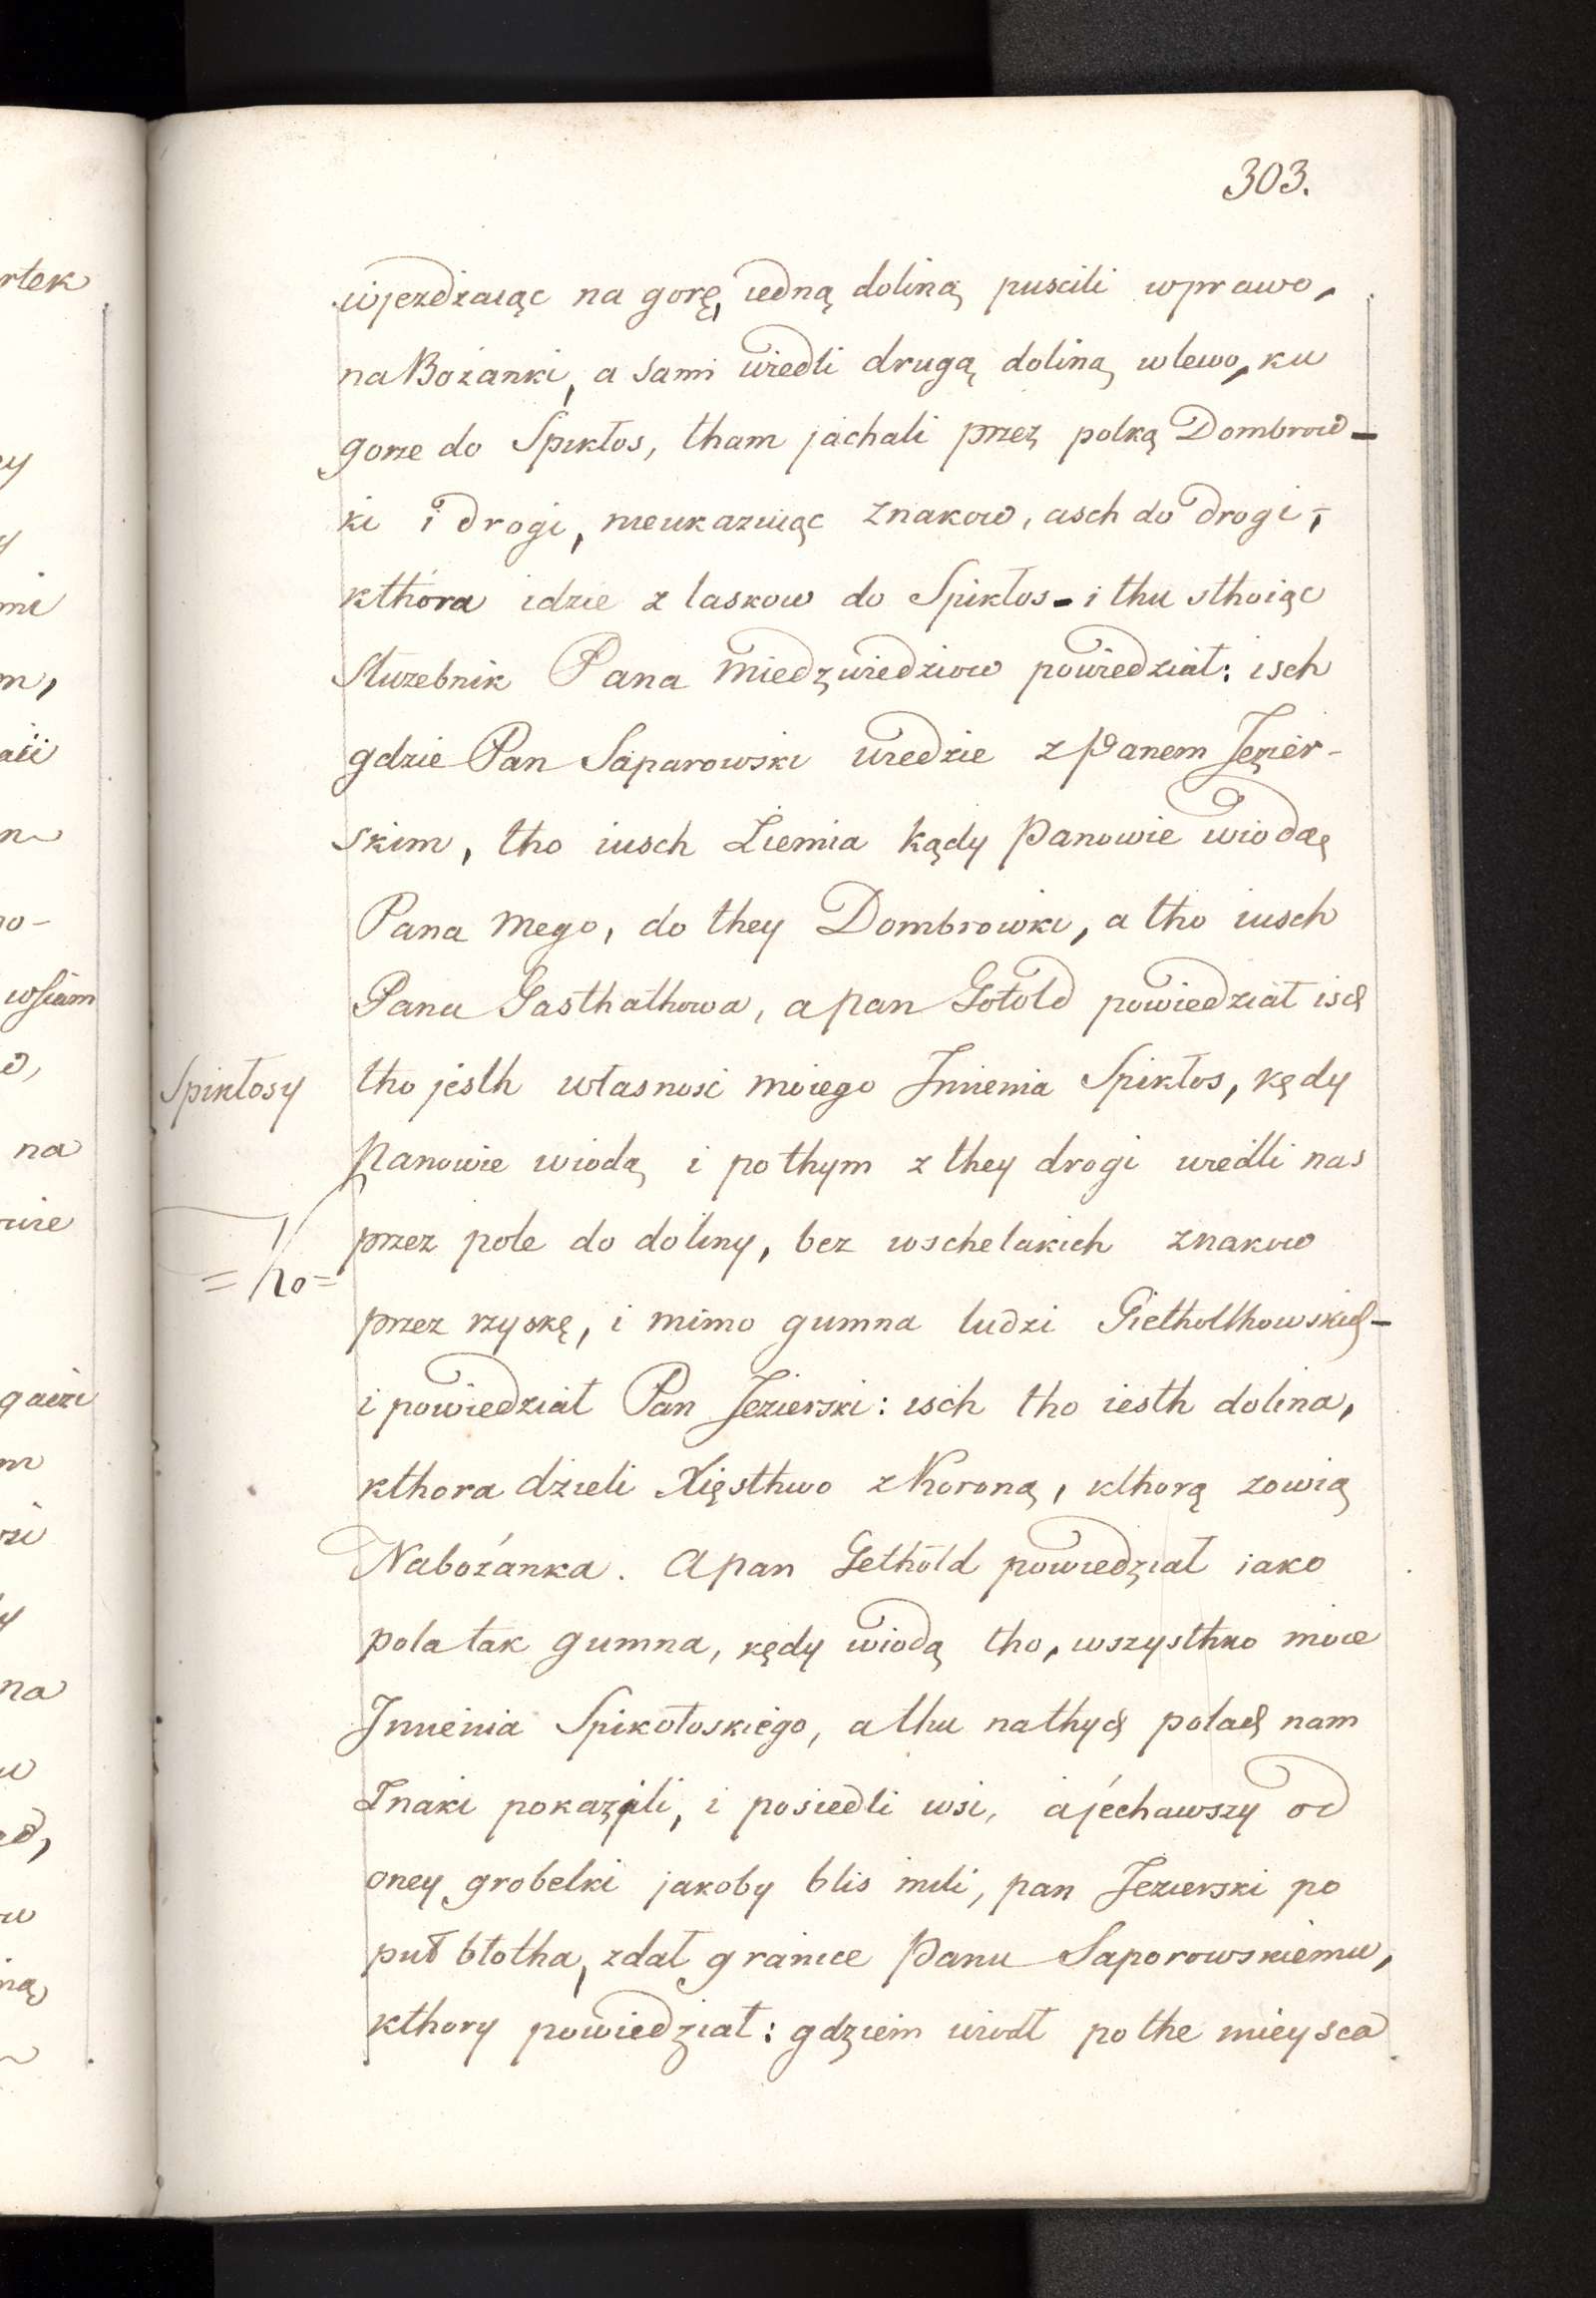 303.
wjezdzaiąc na gorę, iedną doliną puscili wprawo,
na Bożanki, a sami wiedli drugą doliną wlewo, ku
gorze do Spikłos, tham jachali przez polką Dombrow-
ki i drogi, nieukazuiąc znakow, asch do drogi,
kthóra idzie z laskow do Spikłos - i thu sthoiąc
Służebnik Pana Miedzwiedziow powiedział: isch
gdzie Pan Saparowski wiedzie z Panem Jezier-
skim, tho iusch Ziemia kądy Panowie wiodą
Pana mego, do they Dombrowki, a tho iusch
Panu Gasthathowa, a pan Gotold powiedział isch
Spikłosy tho jesth własność moiego Jmienia Spikłos, kędy
Panowie wiodą i po thym z they drogi wiedli nas
przez pole do doliny, bez wschelakich znakow
= ho =
przez rzyskę, i mimo gumna ludzi Gietholthowskich -
i powiedział Pan Jezierski: isch tho iesth dolina,
kthora dzieli Xięsthwo z Koroną, kthorą zowią
Nabożanka. A pan Gethold powiedział iako
pola tak gumna, kędy wiodą tho, wszysthko moie
Jmienia Spikołoskiego, a thu na thych polach nam
Znaki pokazali, i posiedli wsi, a jéchawszy od
oney grobelki jakoby blis mili, pan Jezierski po
puł błotha, zdał granice Panu Saporowskiemu,
kthory powiedział: gdziem wiodł po the mieysca
rtek
mi
m,
n
no-
wsiam
na
wie
gaizi
m
na